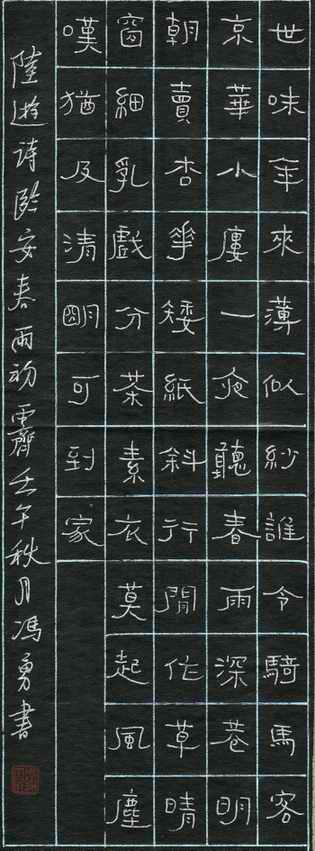 世味年來薄似紗誰令騎馬客
京華小廔一夜聽春雨深巷明
朝賣杏花矮紙斜行閒作草晴
窗細乳戲分茶素衣莫起風塵
嘆猶及清朙可到家
陸遊詩臨安春雨初霽壬午秋月馮勇書